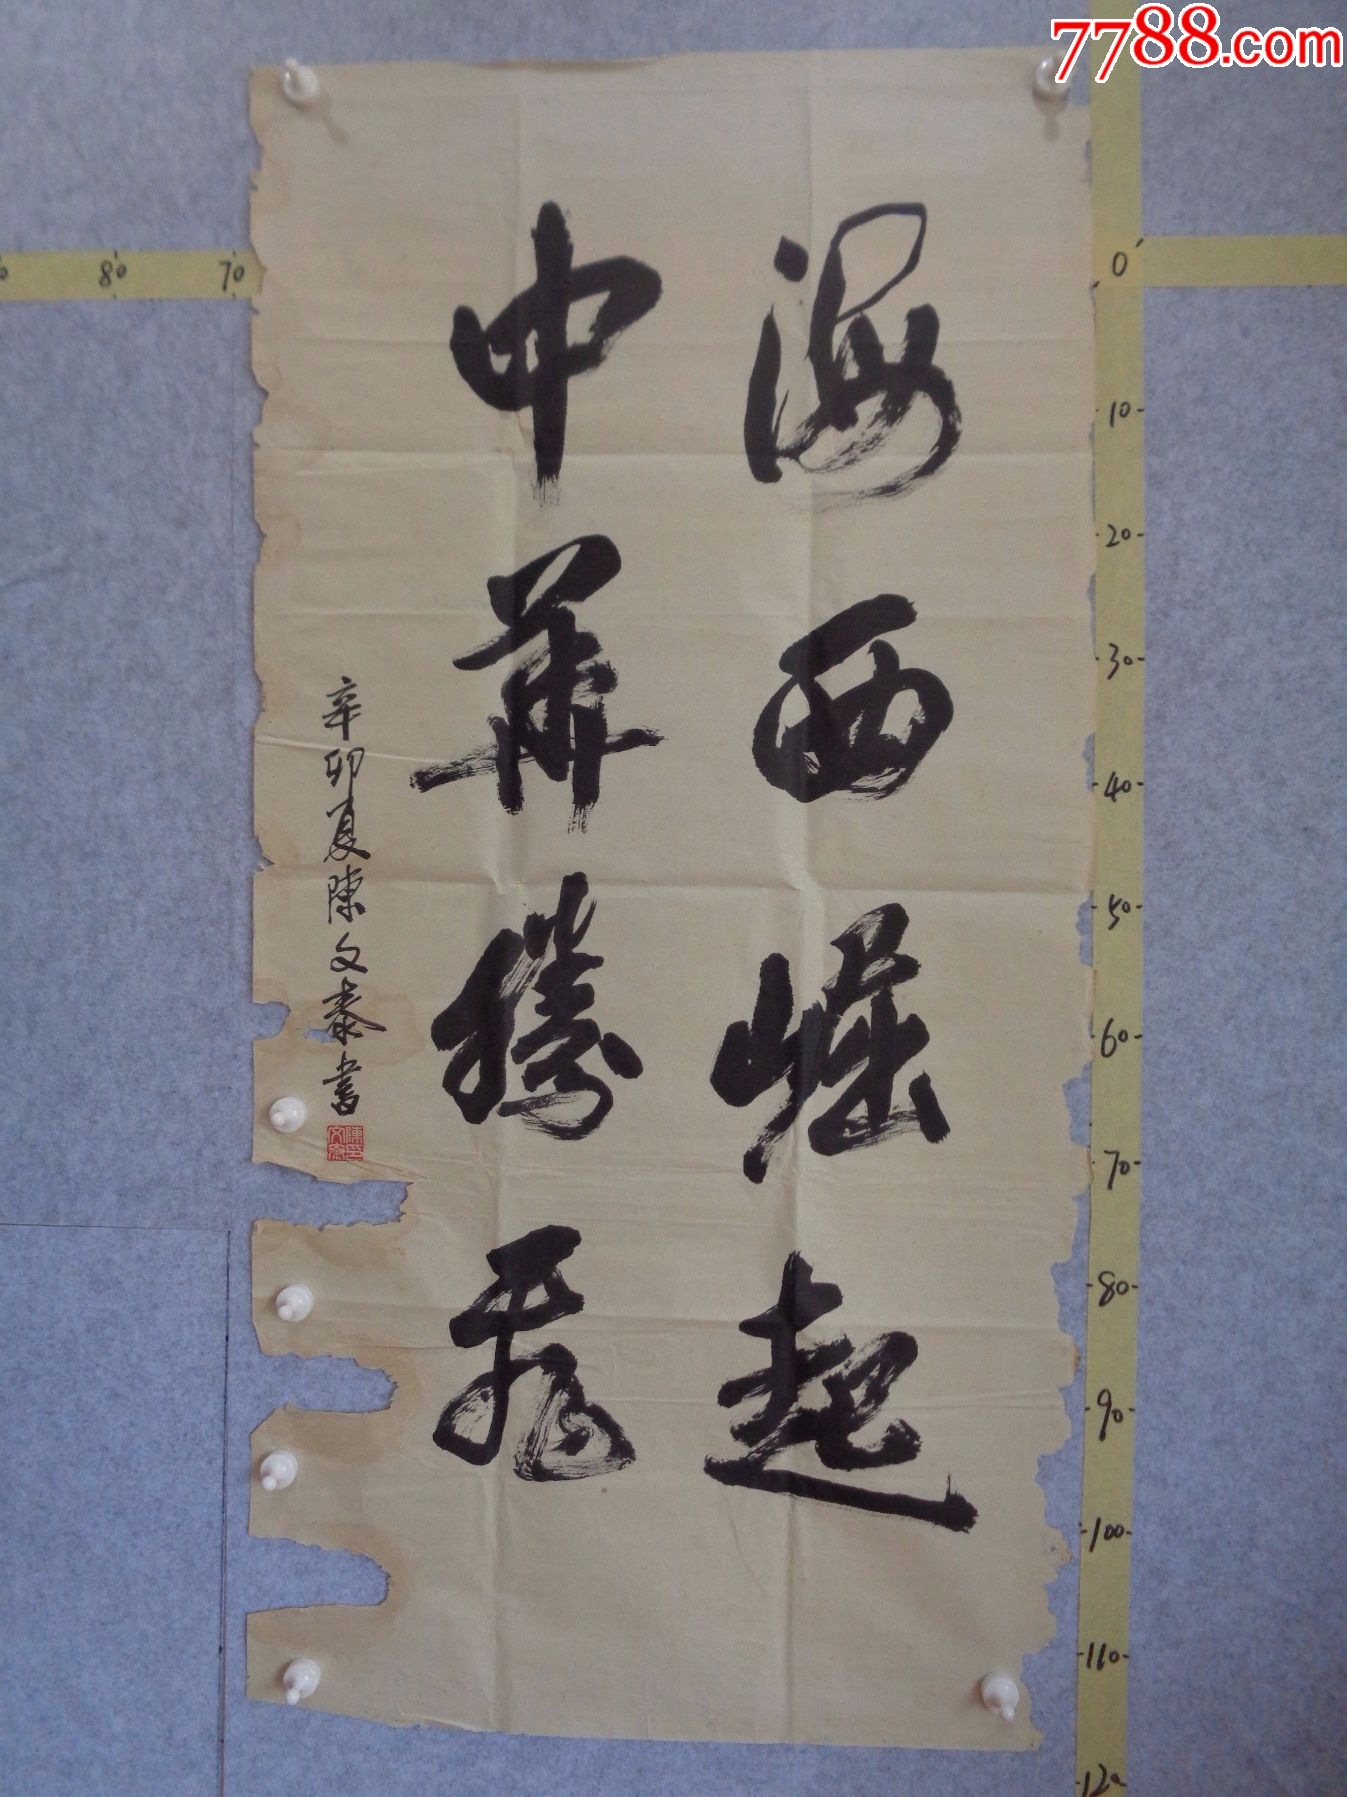 7788.com
海西崛起
中華騰飛
辛卯夏陳文泰書
80
70
0
10
20
30
40
50
60
70
80
90
100
110
120